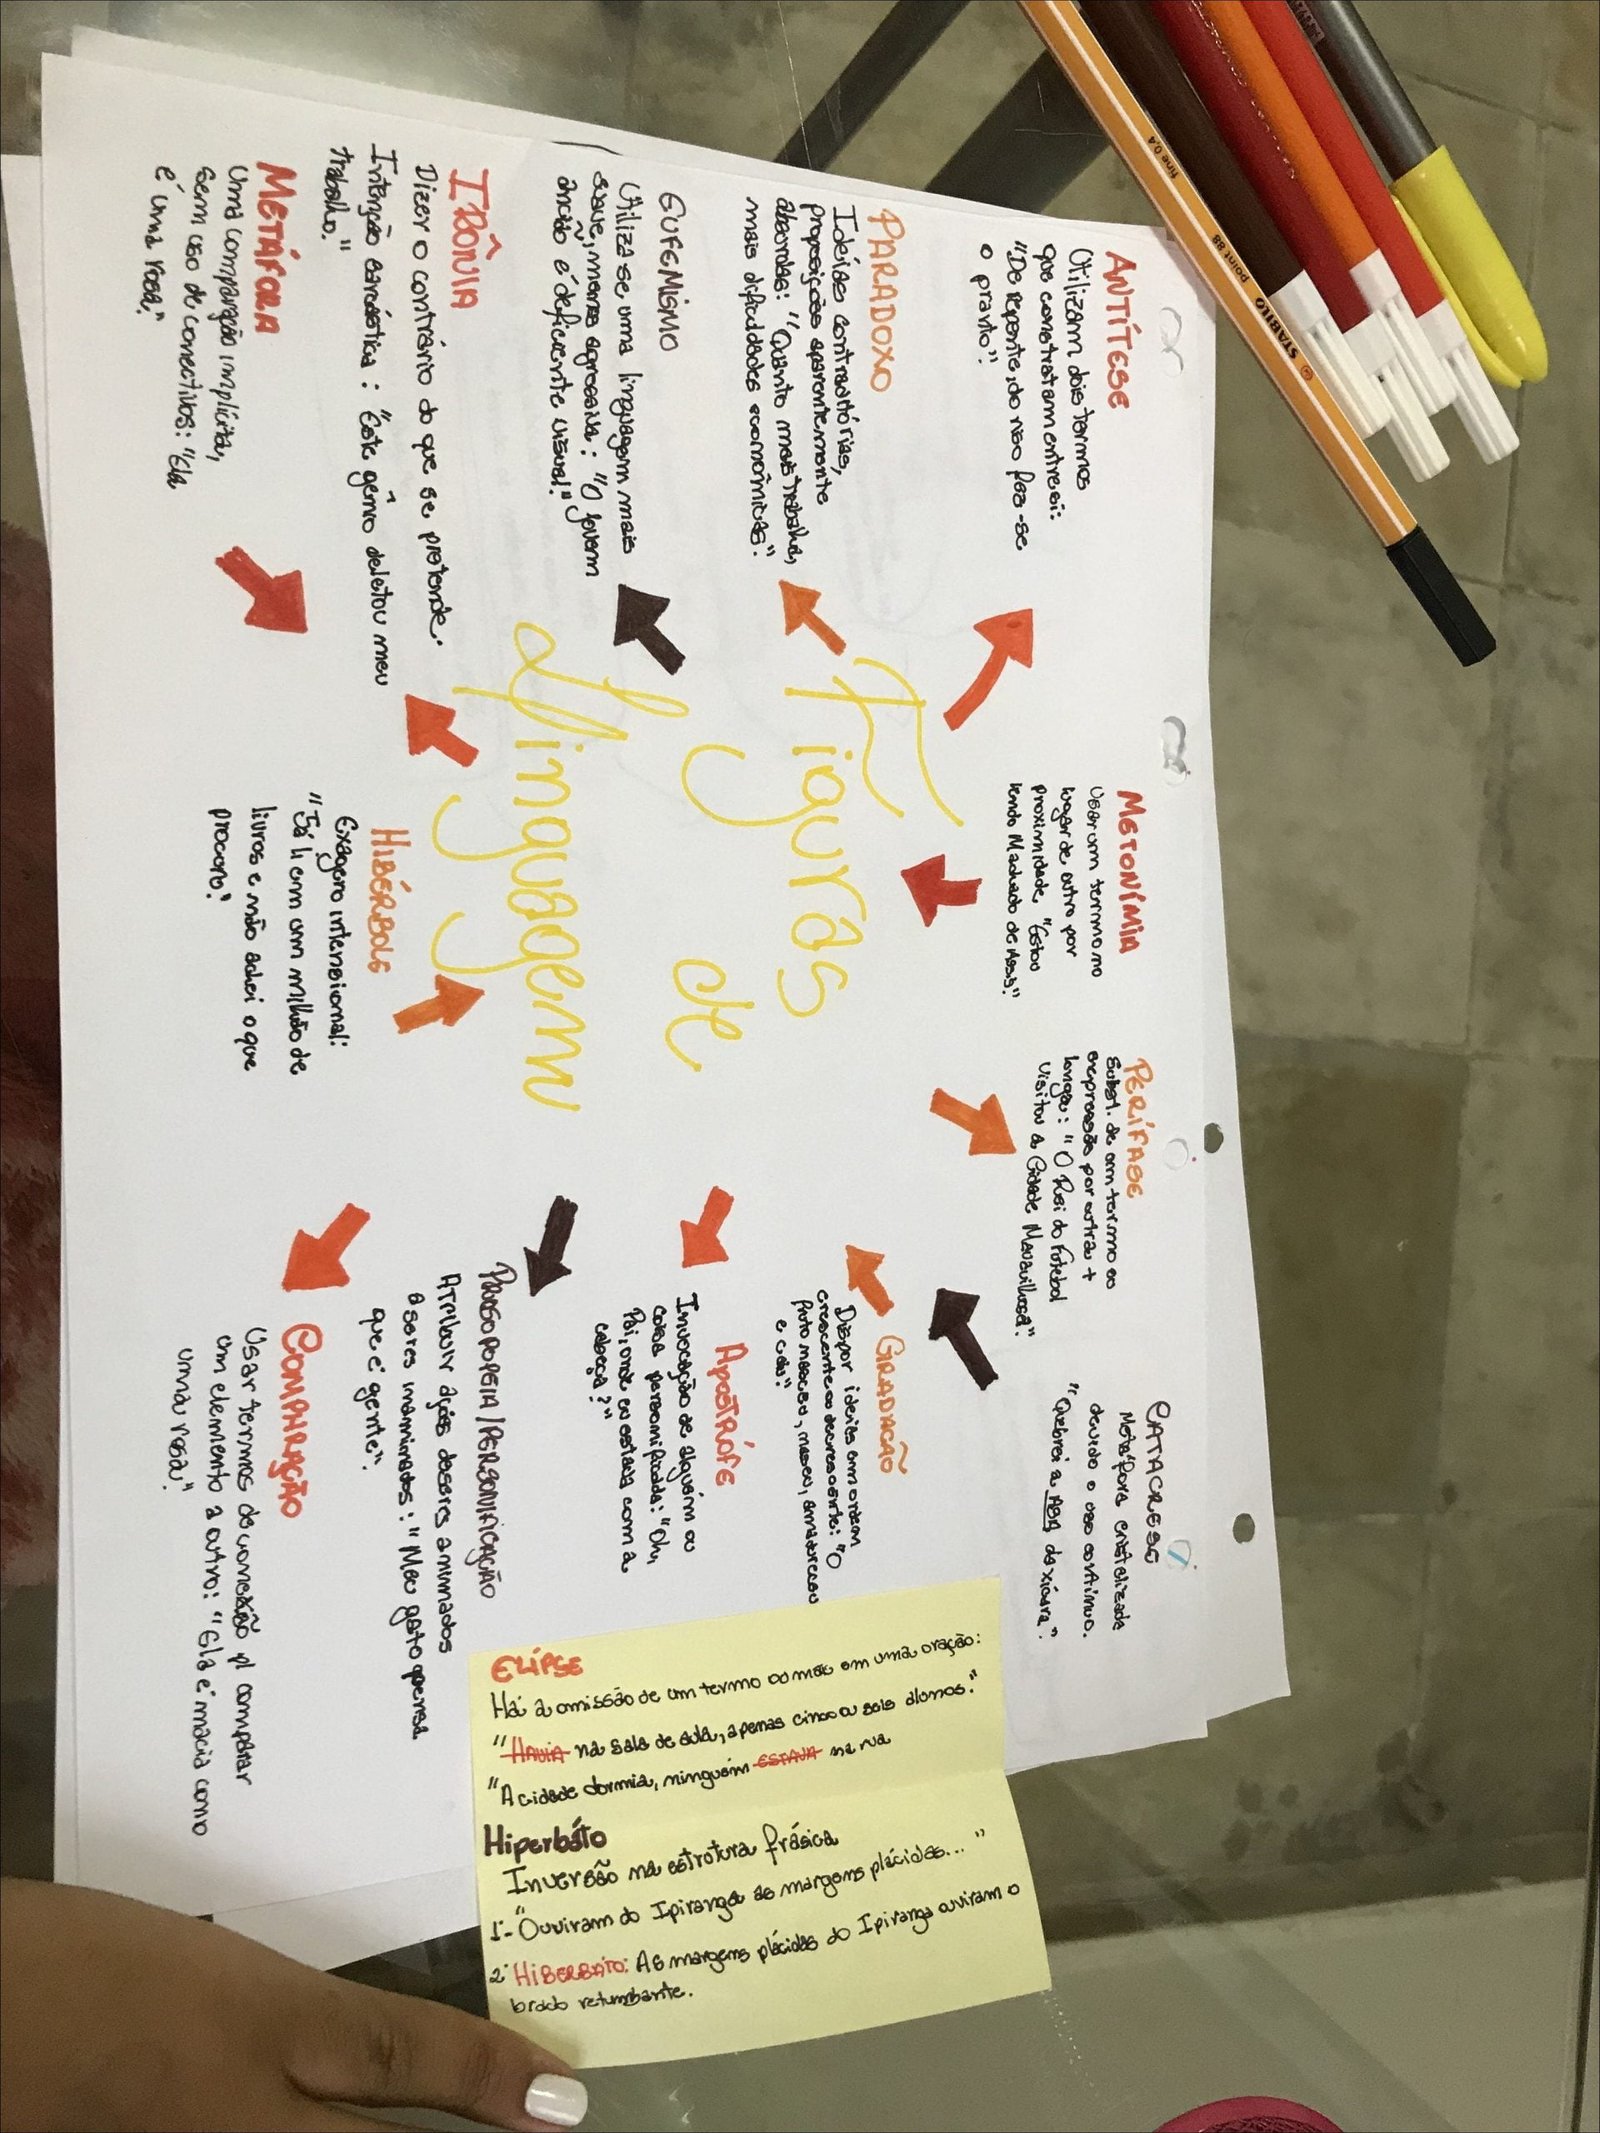 Figuras
de
Linguagem
ANTÍTESE
Utilizam dois termos
que constratam entre si:
"De repente, do riso fez-se
o pranto".
METONÍMIA
Usar um termo no
lugar de outro por
proximidade, "Estou
lendo Machado de Assis".
PERÍFASE
Subst. de um termo ou
expressão por outra +
longa: "O Rei do Futebol
visitou a Cidade Maravilhosa".
CATACRESE
Metáfora cristalizada
devido o uso contínuo.
"Quebrei a ASA da xícara".
PARADOXO
Ideias contraditórias,
proposições aparentemente
absurdas: "Quanto mais trabalho,
mais dificuldades econômicas".
GRADAÇÃO
Dispor ideias em ordem
crescente ou decrescente: "O
fruto nasceu, amadureceu
e caiu".
EUFEMISMO
Utiliza-se uma linguagem mais
suave, menos agressiva: "O jovem
ancião é deficiente visual".
APOSTRÓFE
Invocação de alguém ou
coisa personificada: "Oh,
Pai, onde eu estava com a
cabeça?"
IRÔNIA
Dizer o contrário do que se pretende.
Intenção sarcástica: "Este gênio deletou meu
trabalho."
PROSOPOPEIA/PERSONIFICAÇÃO
Atribuir ações de seres animados
a seres inanimados: "Meu gato pensa
que é gente".
METÁFORA
Uma comparação implícita,
sem uso de conectivos: "Ela
é uma rosa".
HIBÉRBOLE
Exagero intensional:
"Já li em um milhão de
livros e não achei o que
procuro".
COMPARAÇÃO
Usar termos de conexão p/ comparar
um elemento a outro: "Ela é macia como
uma rosa".
ELÍPSE
Há a omissão de um termo ou mais em uma oração:
"HAVIA na sala de aula, apenas cinco ou seis alunos."
"A cidade dormia, ninguém ESTAVA na rua
Hiperbáto
Inversão na estrutura frásica
1- "Ouviram do Ipiranga às margens plácidas..."
2- HIBERBATO: As margens plácidas do Ipiranga ouviram o
brado retumbante.
STABILO point 88
fine 0,4